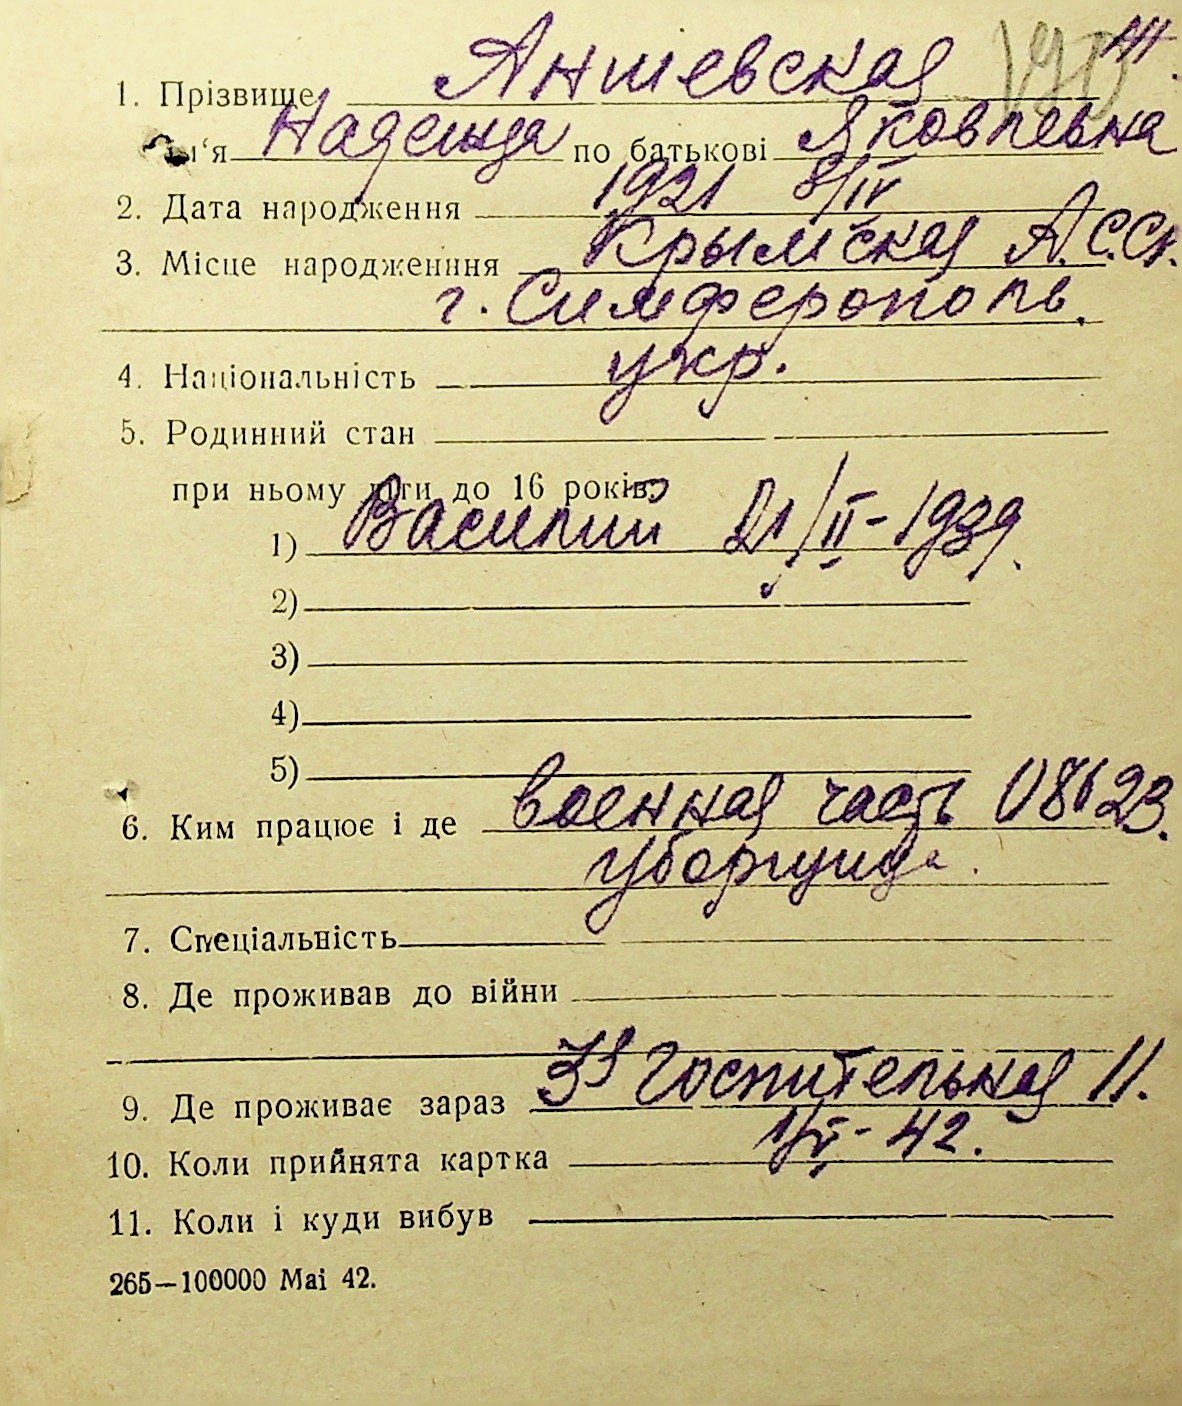 1. Прізвище Аншевская
м'я Надежда по батькові Яковлевна
2. Дата народження 1921 8/IV
3. Місце народженння Крымская А.С.С.Р.
г. Симферополь.
4. Національність укр.
5. Родинний стан
при ньому діти до 16 років:
1) Василий 21/II-1939.
2)
3)
4)
5)
6. Ким працює і де военная часть 08623.
Уборщица.
7. Спеціальність
8. Де проживав до війни
9. Де проживає зараз Госпительная 11.
10. Коли прийнята картка 1/VI-42.
11. Коли і куди вибув
265—100000 Mai 42.